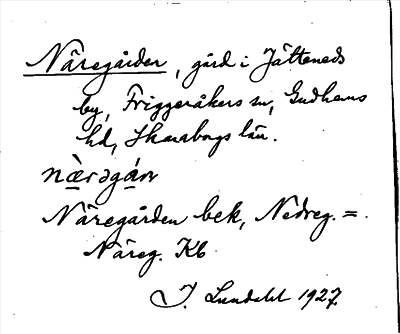 Näregården, gård i Jättened s
by, Friggeråkers sn, Gudhems
hd, Skaraborgs län.
næ̀rəgáɳ
Näregården bek, Nedreg. =
Näreg. Kb
J. Lundahl 1927.